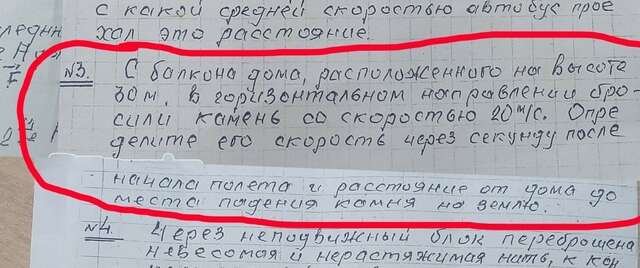 с какой средней скоростью автобус прое
хал это расстояние.
№3. С балкона дома, расположенного на высоте
30 м. в горизонтальном направлении бро-
сили камень со скоростью 20 м/с. Опре
делите его скорость через секунду после
начала полета и расстояние от дома до
места падения камня на землю.
№4. Через неподвижный блок переброшена
невесомая и нерастяжимая нить, к кон